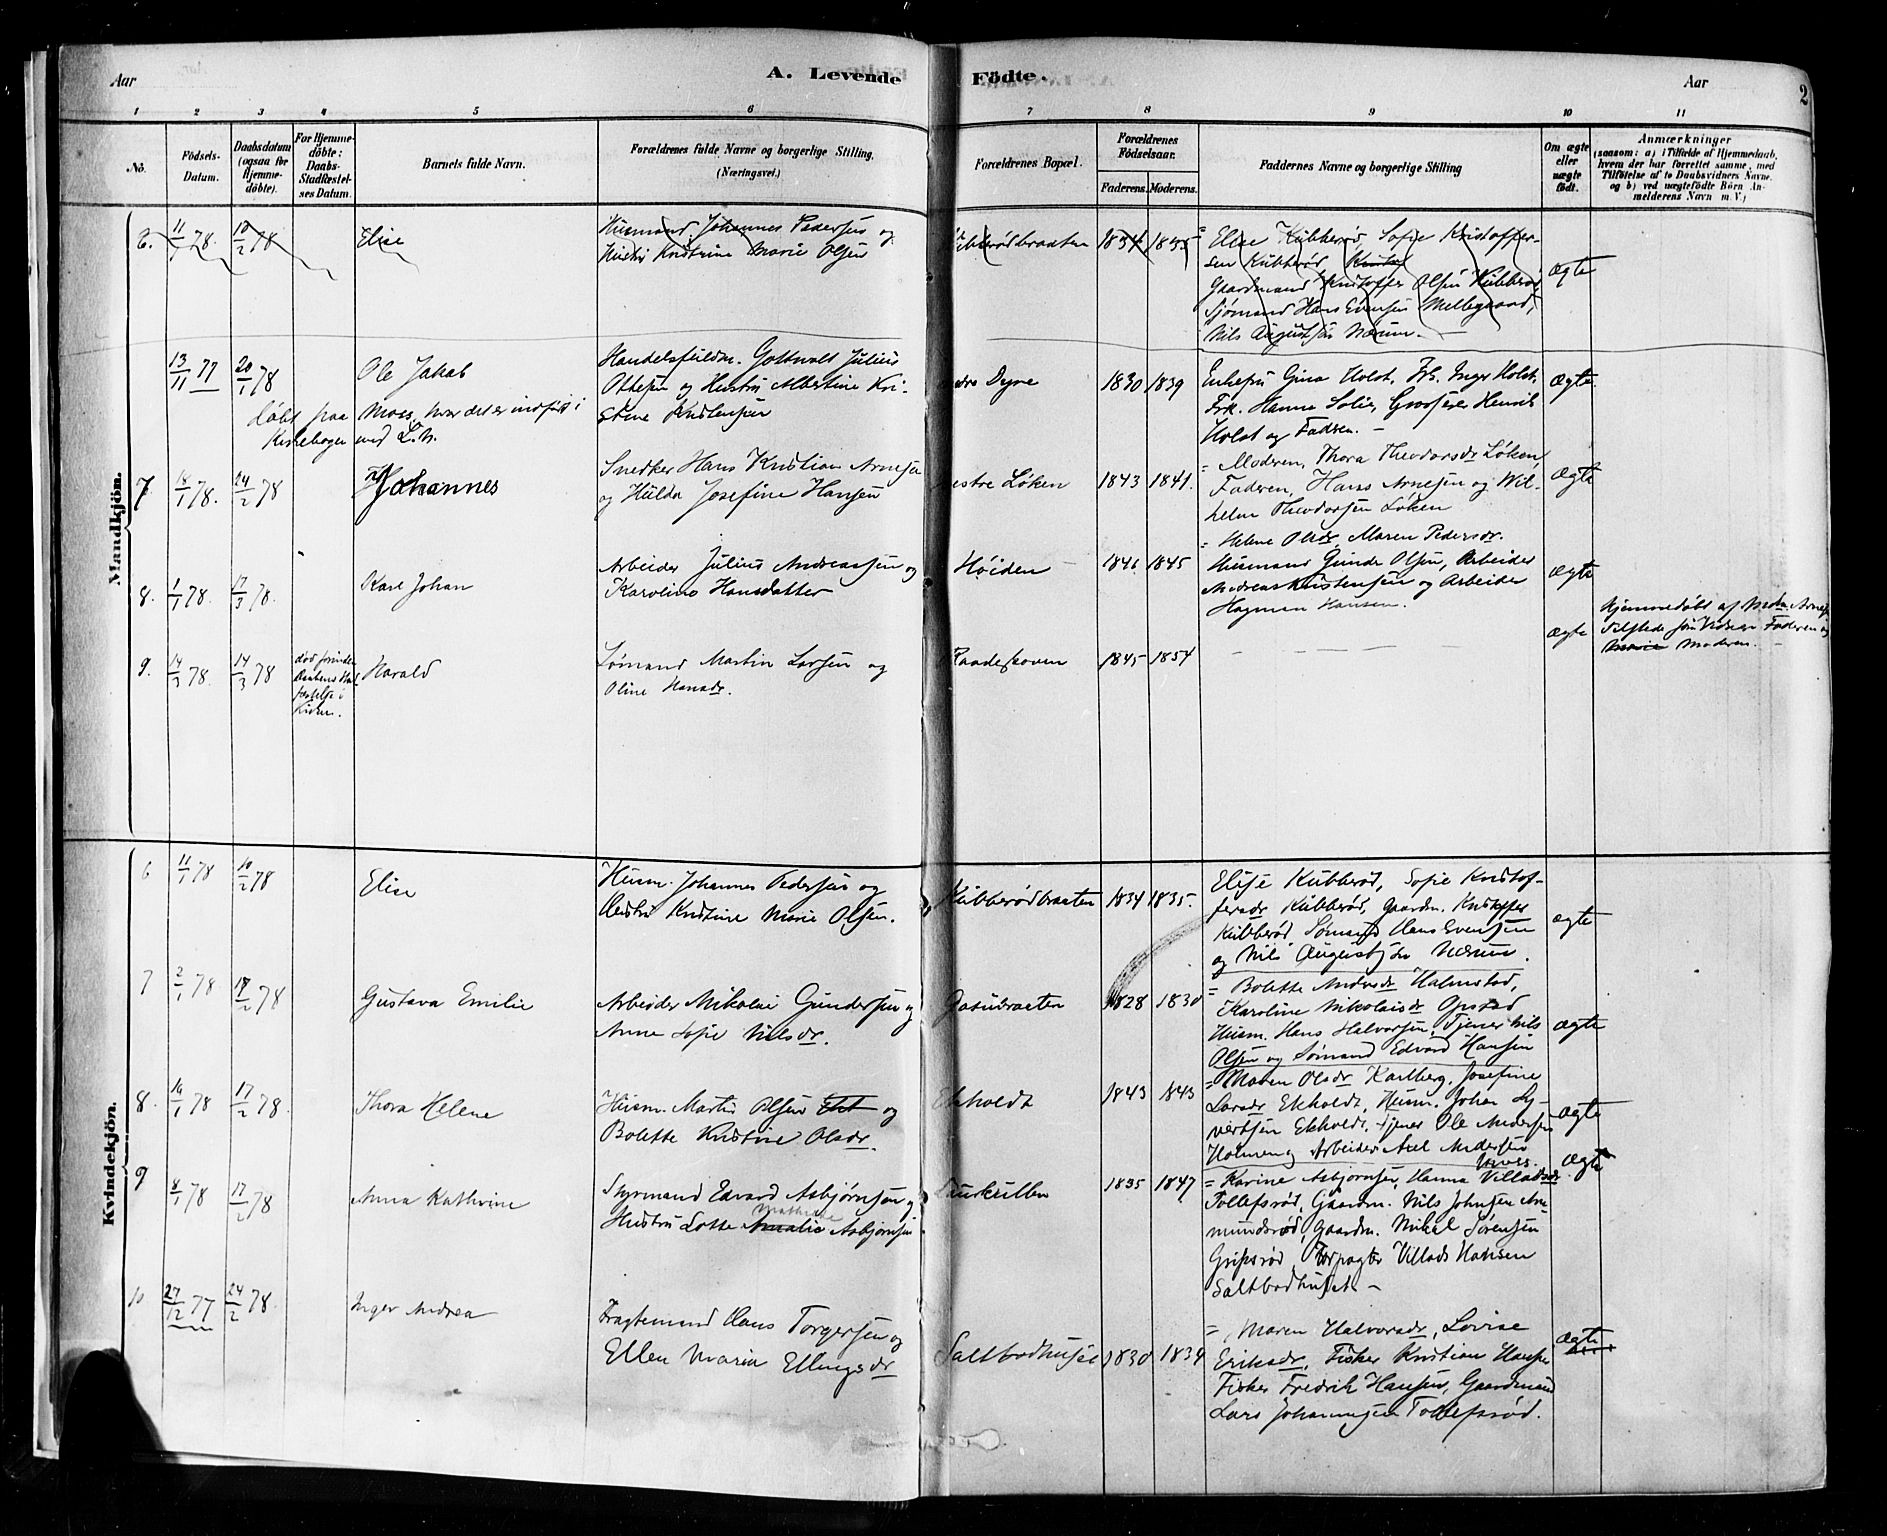 Aar
A. Levende Födte.
Aar
2
1 2 3 4 5 6 7 8 9 10 11
No.
Födsels-
Datum.
Daabsdatum
(ogsaa for
Hjemme-
döbte).
For Hjemme-
döbte:
Daabs
Stadfæstel-
ses Datum.
Barnets fulde Navn.
Forældrenes fulde Navne og borgerlige Stilling,
(Næringsvei.)
Forældrenes Bopæl.
Forældrenes
Födselsaar.
Faderens. Moderens.
Faddernes Navne og borgerlige Stilling
Om ægte
eller
uægte
födt.
Anmærkninger
(saasom: a) i Tilfælde af Hjemmedaab,
hvem der har forrettet samme, med
Tilföielse af to Daabsvidners Navne,
og b) ved uægtefödte Börn An-
melderens Navn m. V.)
Mandkjön.
6. 11/1 78. 10/2 78 Elise
Husmand Johannes Pedersen og
Hustru Kristine Marie Olsen
Kubberødbraaten 1834 1835
= Elise Kubberød, Sofie Kristoffer-
sen Kubberød
Gaardmand Kristoffer Olsen Kubberød
Sjømand Hans Evensen Mellegaard,
Nils Augustsen Nærum.
Ægte
13/11 77 20/1 78 Ole Jakob
døbt paa Moss, hvor det er indført i
Kirkebogen med L. N.
Handelsfuldm. Gottwalt Julius
Ottesen og Hustru Albertine Kri-
stine Kristensen
Dyre 1830 1839
Enkefru Gina Holst, Frk. Inger Holst,
Frk. Hanna Solie, Grosserer Henrik
Holst og Faderen. –
Ægte
7 18/1 78. 24/2 78 Johannes
Snedker Hans Kristian Arnesen
og Hulda Josefine Hansen
Vestre Løken 1843 1841.
= Moderen, Thora Theodorsdr Løken,
Faderen, Hans Arnesen og Wil-
helm Theodorsen Løken
Ægte
8. 1/1 78. 17/3 78. Karl Johan
Arbeider Julius Andreassen og
Karoline Hansdatter
Høiden 1846 1845
= Helene Olsdr, Maren Pedersdr.
Husmand Gunder Olsen, Arbeider
Andreas Kristensen og Arbeider
Hagman Hansen.
Ægte
9. 14/3 78. 14/3 78
død forinden
Daabens Stad-
fæstelse i
Kirken.
Harald
Sømand Martin Larsen og
Oline Hansdr.
Raadeskoven 1845 1854
Ægte
Hjemmedøbt af Arnesen
Tilstede som Vidner Faderen og
Moderen. –
Kvindekjön.
6 11/1 78 10/2 78 Elise
Husm. Johannes Pedersen og
Hustru Kristine Marie Olsen.
Kubberødbraaten 1834 1835.
Elise Kubberød, Sofie Kristof-
fersdr Kubberød, Gaardm. Kristoffer
Kubberød, Sømand Hans Evensen
og Nils Augustsen Nærum.
Ægte
7 2/1 78 17/2 78 Gustava Emilie
Arbeider Nikolai Gundersen og
Anne Sofie Nilsdr.
1828 1830
= Bolette Andrsdr Halmstad,
Karoline Nikolaisdr Opstad
Husm. Hans Halvorsen, Tjener Nils
Olsen og Sømand Edvard Hansen
Ægte
8. 10/1 78 17/2 78. Thora Helene
Husm. Martin Olsen og
Bolette Kristine Olsdr.
Ekholdt 1843 1843
= Maren Olsdr Karlberg, Josefine
Larsdr Ekholdt, Husm. Johan Sy-
vertsen Ekholdt, Tjener Ole Andersen
Holmen og Arbeider Axel Andersen
Moss.
Ægte
9 8/1 78 17/2 78 Anna Kathrine
Styrmand Edvard Asbjørnsen og
Mathilde
Hustru Lotte Amalie Asbjørnsen
1835 1847
= Karine Asbjørnsen, Hanna Villadsdr
Tollefsrød, Gaardm. Nils Johnsen Am-
mundsrød, Gaardm. Mikal Sørensen
Gripsrød, Forpagter Villads Hansen
Saltbodhuset –
Ægte
10 27/12 77 24/2 78. Inger Andrea
Fragtemand Hans Torgersen og
Ellen Maria Ellingsdr
Saltbodhuset 1830 1834
= Maren Halvorsdr, Lovise
Eriksdr, Fisker Kristian Hansen
Fisker Fredrik Hansen, Gaardmand
Lars Johannesen Tollefsrød.
Ægte